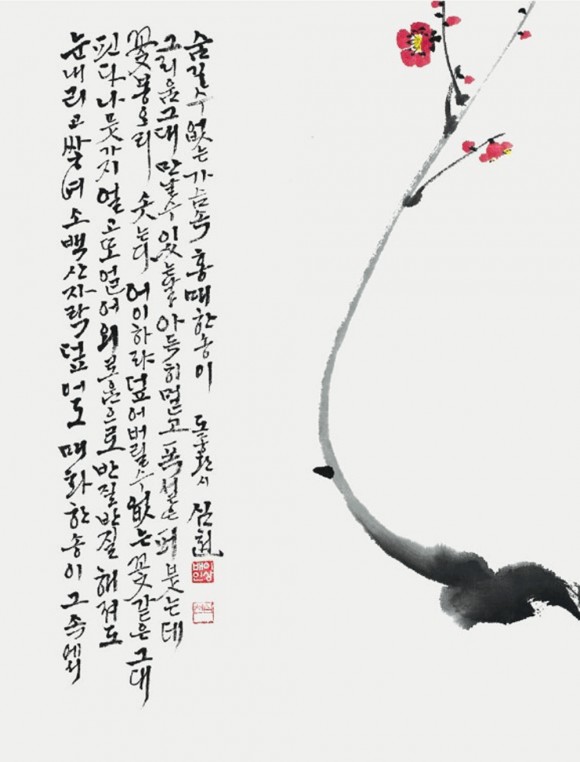 눈 내리고 쌓여 소백산 자락 덮어도 매화 한 송이 그 속에서
핀다 나뭇가지 얼고 또 얼어 외로움으로 반질반질 해져도
꽃봉오리 솟는다 어이하랴 덮어버릴 수 없는 꽃 같은 그대
그리움 그대 만날 수 있는 날 아득히 멀고 폭설은 퍼붓는데
숨길 수 없는 가슴 속 홍매 한 송이 도종환 시
이상배인